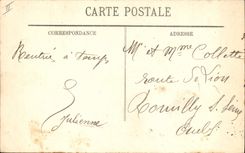 II
CARTE POSTALE
CORRESPONDANCE
ADRESSE
Rentré à temps
Julienne
Mr et Mme Collette
route de Dijon
Romilly s. Seine
Aube